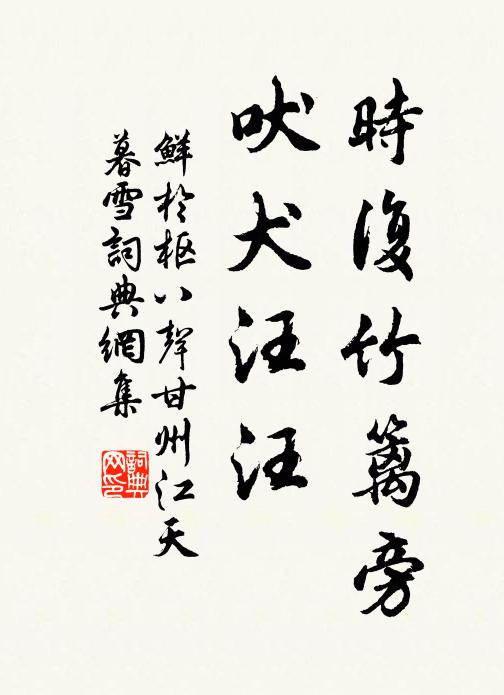 時復竹籬旁
吠犬汪汪
鮮於枢八聲甘州江天
暮雪詞典網集
詞典网印